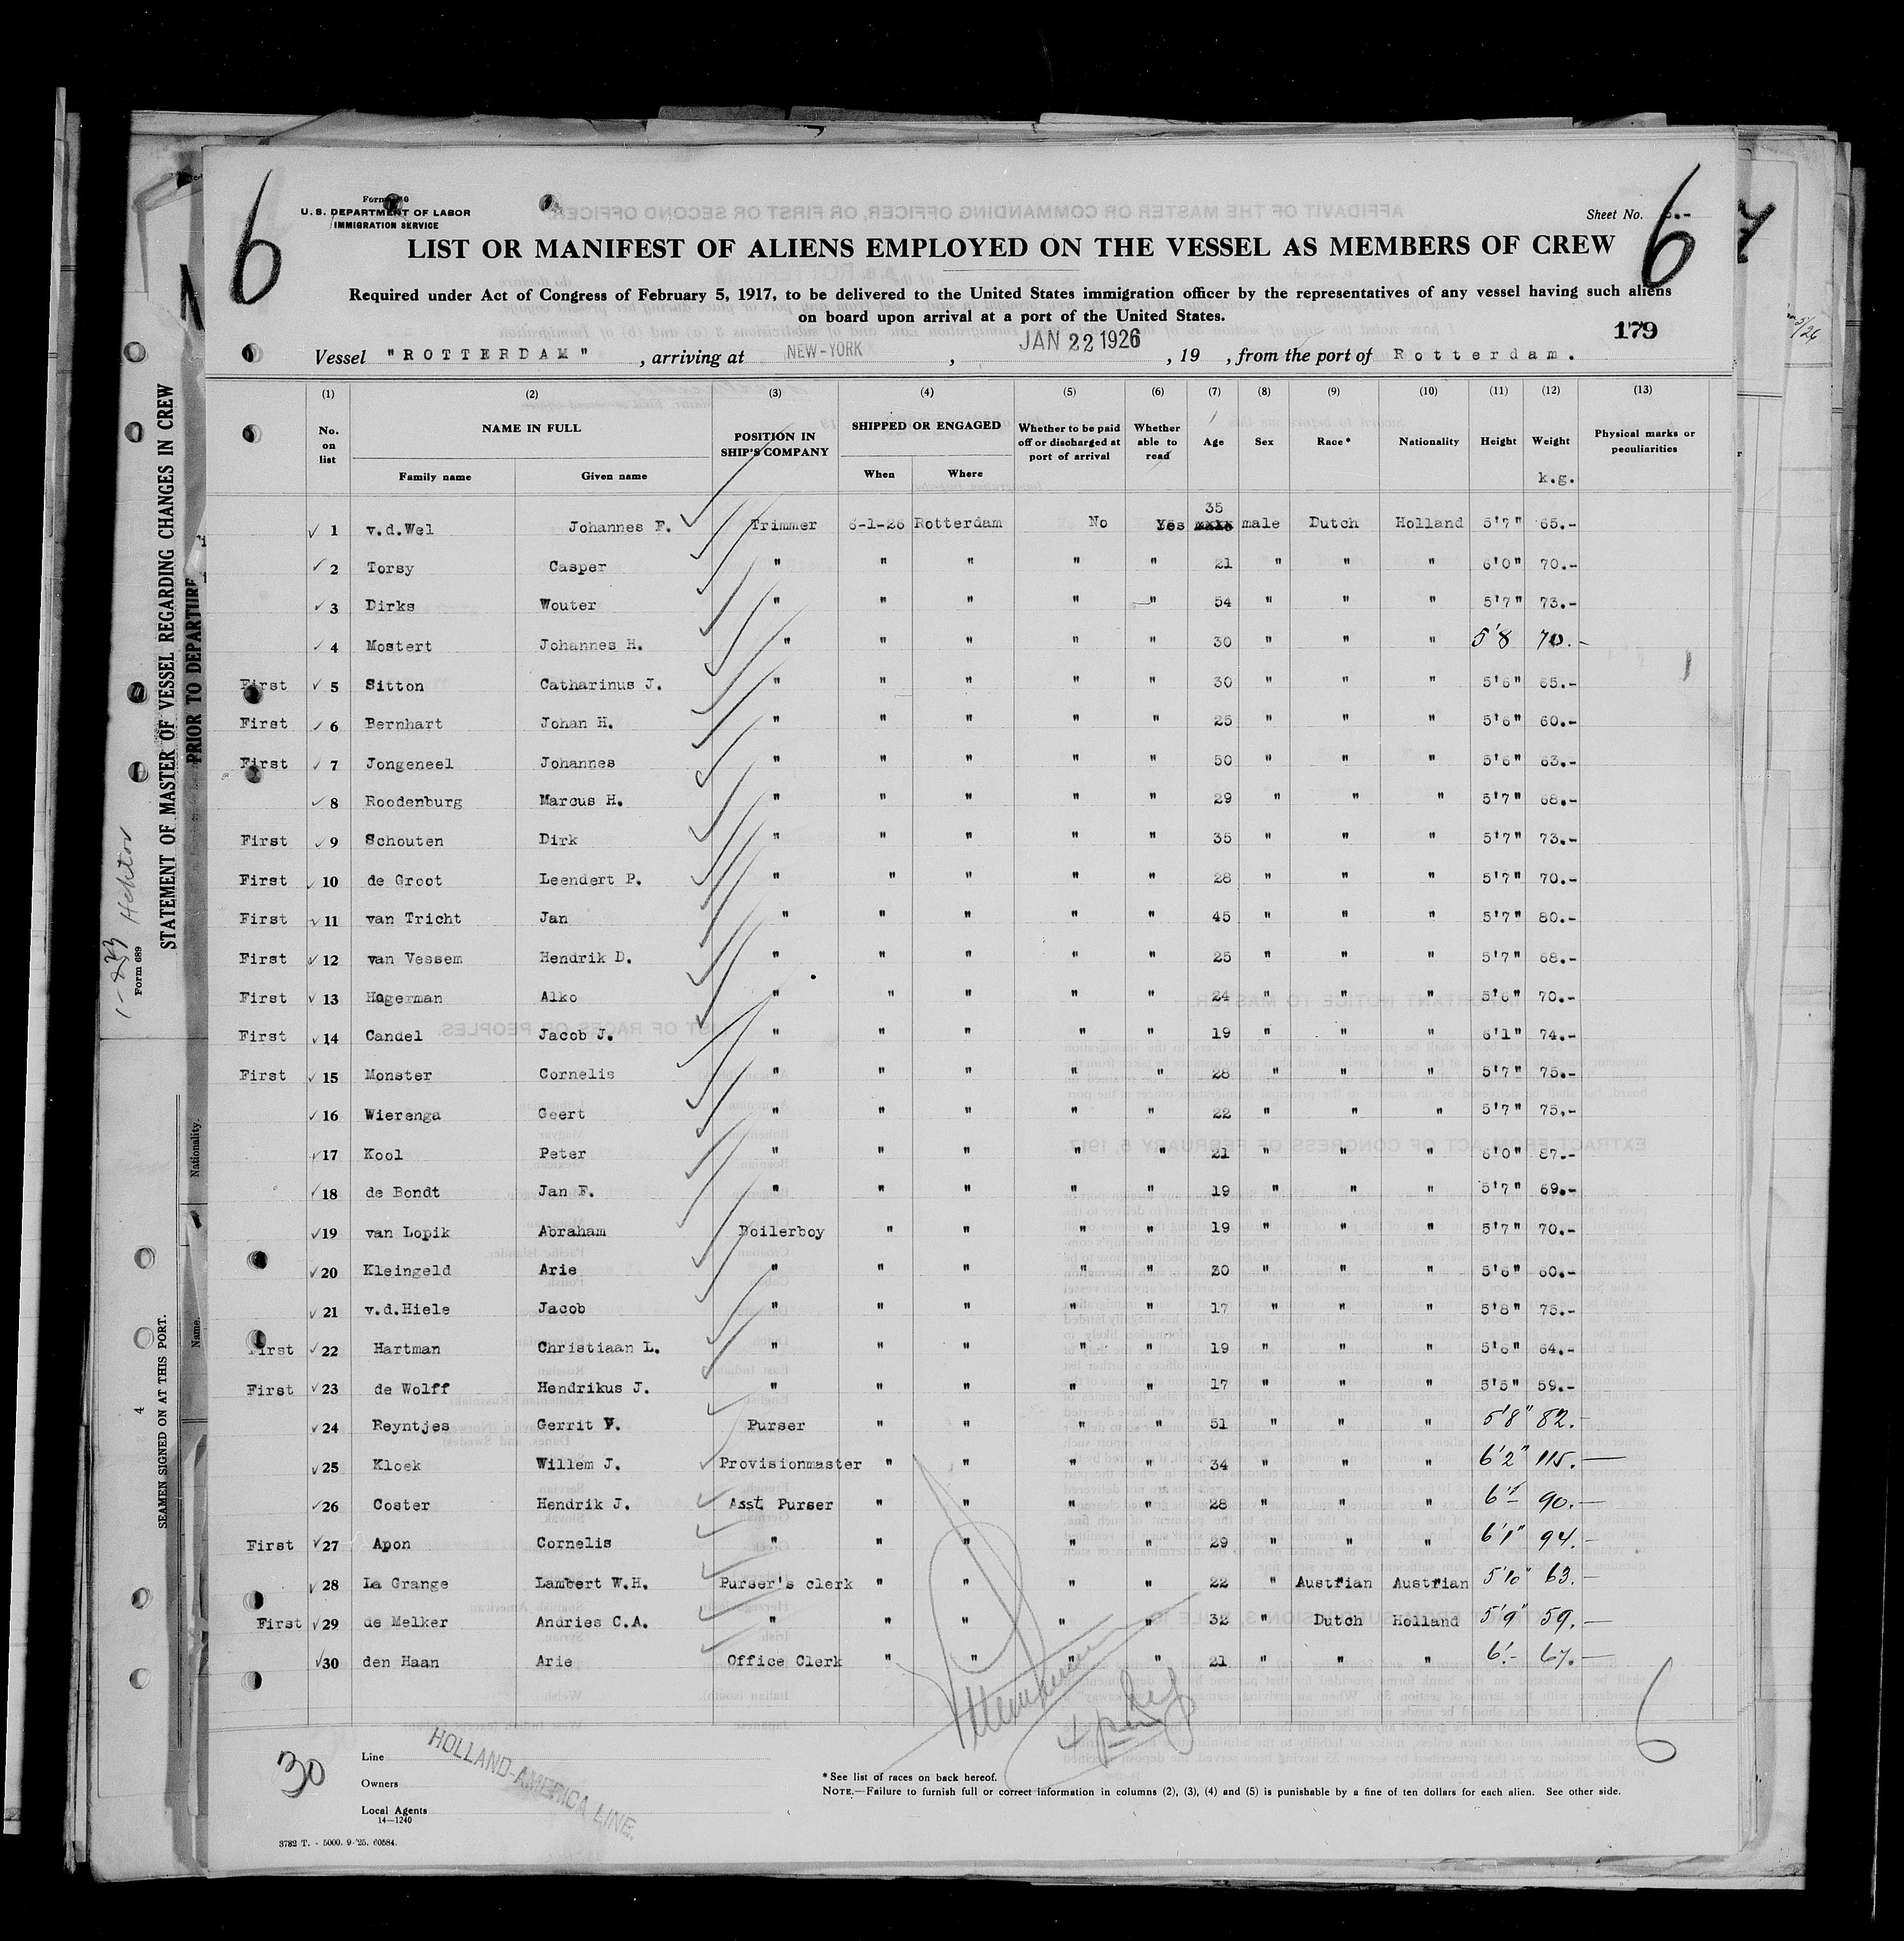 6
6
Form
U. S. DEPARTMENT OF LABOR
IMMIGRATION SERVICE
Sheet No. 6.-
LIST OR MANIFEST OF ALIENS EMPLOYED ON THE VESSEL AS MEMBERS OF CREW
Required under Act of Congress of February 5, 1917, to be delivered to the United States immigration officer by the representatives of any vessel having such aliens
on board upon arrival at a port of the United States.
179
Vessel "ROTTERDAM" , arriving at NEW-YORK , JAN 22 1926 , 19 , from the port of Rotterdam.
(1) (2) (3) (4) (5) (6) (7) (8) (9) (10) (11) (12) (13)
No. on list NAME IN FULL Family name Given name POSITION IN SHIP'S COMPANY SHIPPED OR ENGAGED When Where Whether to be paid off or discharged at port of arrival Whether able to read Age Sex Race* Nationality Height Weight k.g. Physical marks or peculiarities
1 v.d.Wel Johannes F. Trimmer 6-1-26 Rotterdam No Yes 35 male Dutch Holland 5'7" 65.-
2 Torsy Casper " " " " " 21 " " " 6'0" 70.-
3 Dirks Wouter " " " " " 54 " " " 5'7" 73.-
4 Mostert Johannes H. " " " " " 30 " " " 5'8 70.-
First 5 Sitton Catharinus J. " " " " " 30 " " " 5'6" 65.-
First 6 Bernhart Johan H. " " " " " 25 " " " 5'6" 60.-
First 7 Jongeneel Johannes " " " " " 50 " " " 5'6" 63.-
8 Roodenburg Marcus H. " " " " " 29 " " " 5'7" 68.-
First 9 Schouten Dirk " " " " " 35 " " " 5'7" 73.-
First 10 de Groot Leendert P. " " " " " 28 " " " 5'7" 70.-
First 11 van Tricht Jan " " " " " 45 " " " 5'7" 80.-
First 12 van Vessem Hendrik D. " " " " " 25 " " " 5'7" 68.-
First 13 Hagerman Alko " " " " " 24 " " " 5'6" 70.-
First 14 Candel Jacob J. " " " " " 19 " " " 6'1" 74.-
First 15 Monster Cornelis " " " " " 28 " " " 5'7" 75.-
16 Wierenga Geert " " " " " 22 " " " 5'7" 75.-
17 Kool Peter " " " " " 21 " " " 6'0" 87.-
18 de Bondt Jan F. " " " " " 19 " " " 5'7" 69.-
19 van Lopik Abraham Boilerboy " " " " 19 " " " 5'7" 70.-
20 Kleingeld Arie " " " " " 30 " " " 5'6" 60.-
21 v.d.Hiele Jacob " " " " " 17 " " " 5'8" 75.-
First 22 Hartman Christiaan L. " " " " " 19 " " " 5'6" 64.-
First 23 de Wolff Hendrikus J. " " " " " 17 " " " 5'5" 59.-
24 Reyntjes Gerrit V. Purser " " " " 51 " " " 5'8" 82.-
25 Kloek Willem J. Provisionmaster " " " " 34 " " " 6'2" 115.-
26 Coster Hendrik J. Asst. Purser " " " " 28 " " " 6'1" 90.-
First 27 Apon Cornelis " " " " " 29 " " " 6'1" 94.-
28 La Grange Lambert W.H. Purser's clerk " " " " 22 " Austrian Austrian 5'10" 63.-
First 29 de Melker Andries C.A. " " " " " 32 " Dutch Holland 5'9" 59.-
30 den Haan Arie Office Clerk " " " " 21 " " " 6'- 67.-
6
30
Line
Owners
Local Agents
14—1240
HOLLAND-AMERICA LINE.
*See list of races on back hereof.
NOTE.—Failure to furnish full or correct information in columns (2), (3), (4) and (5) is punishable by a fine of ten dollars for each alien. See other side.
3782 T. - 5000. 9-'25. 60584.
STATEMENT OF MASTER OF VESSEL REGARDING CHANGES IN CREW
PRIOR TO DEPARTURE
Form 689
Nationality.
Name.
SEAMEN SIGNED ON AT THIS PORT.
4